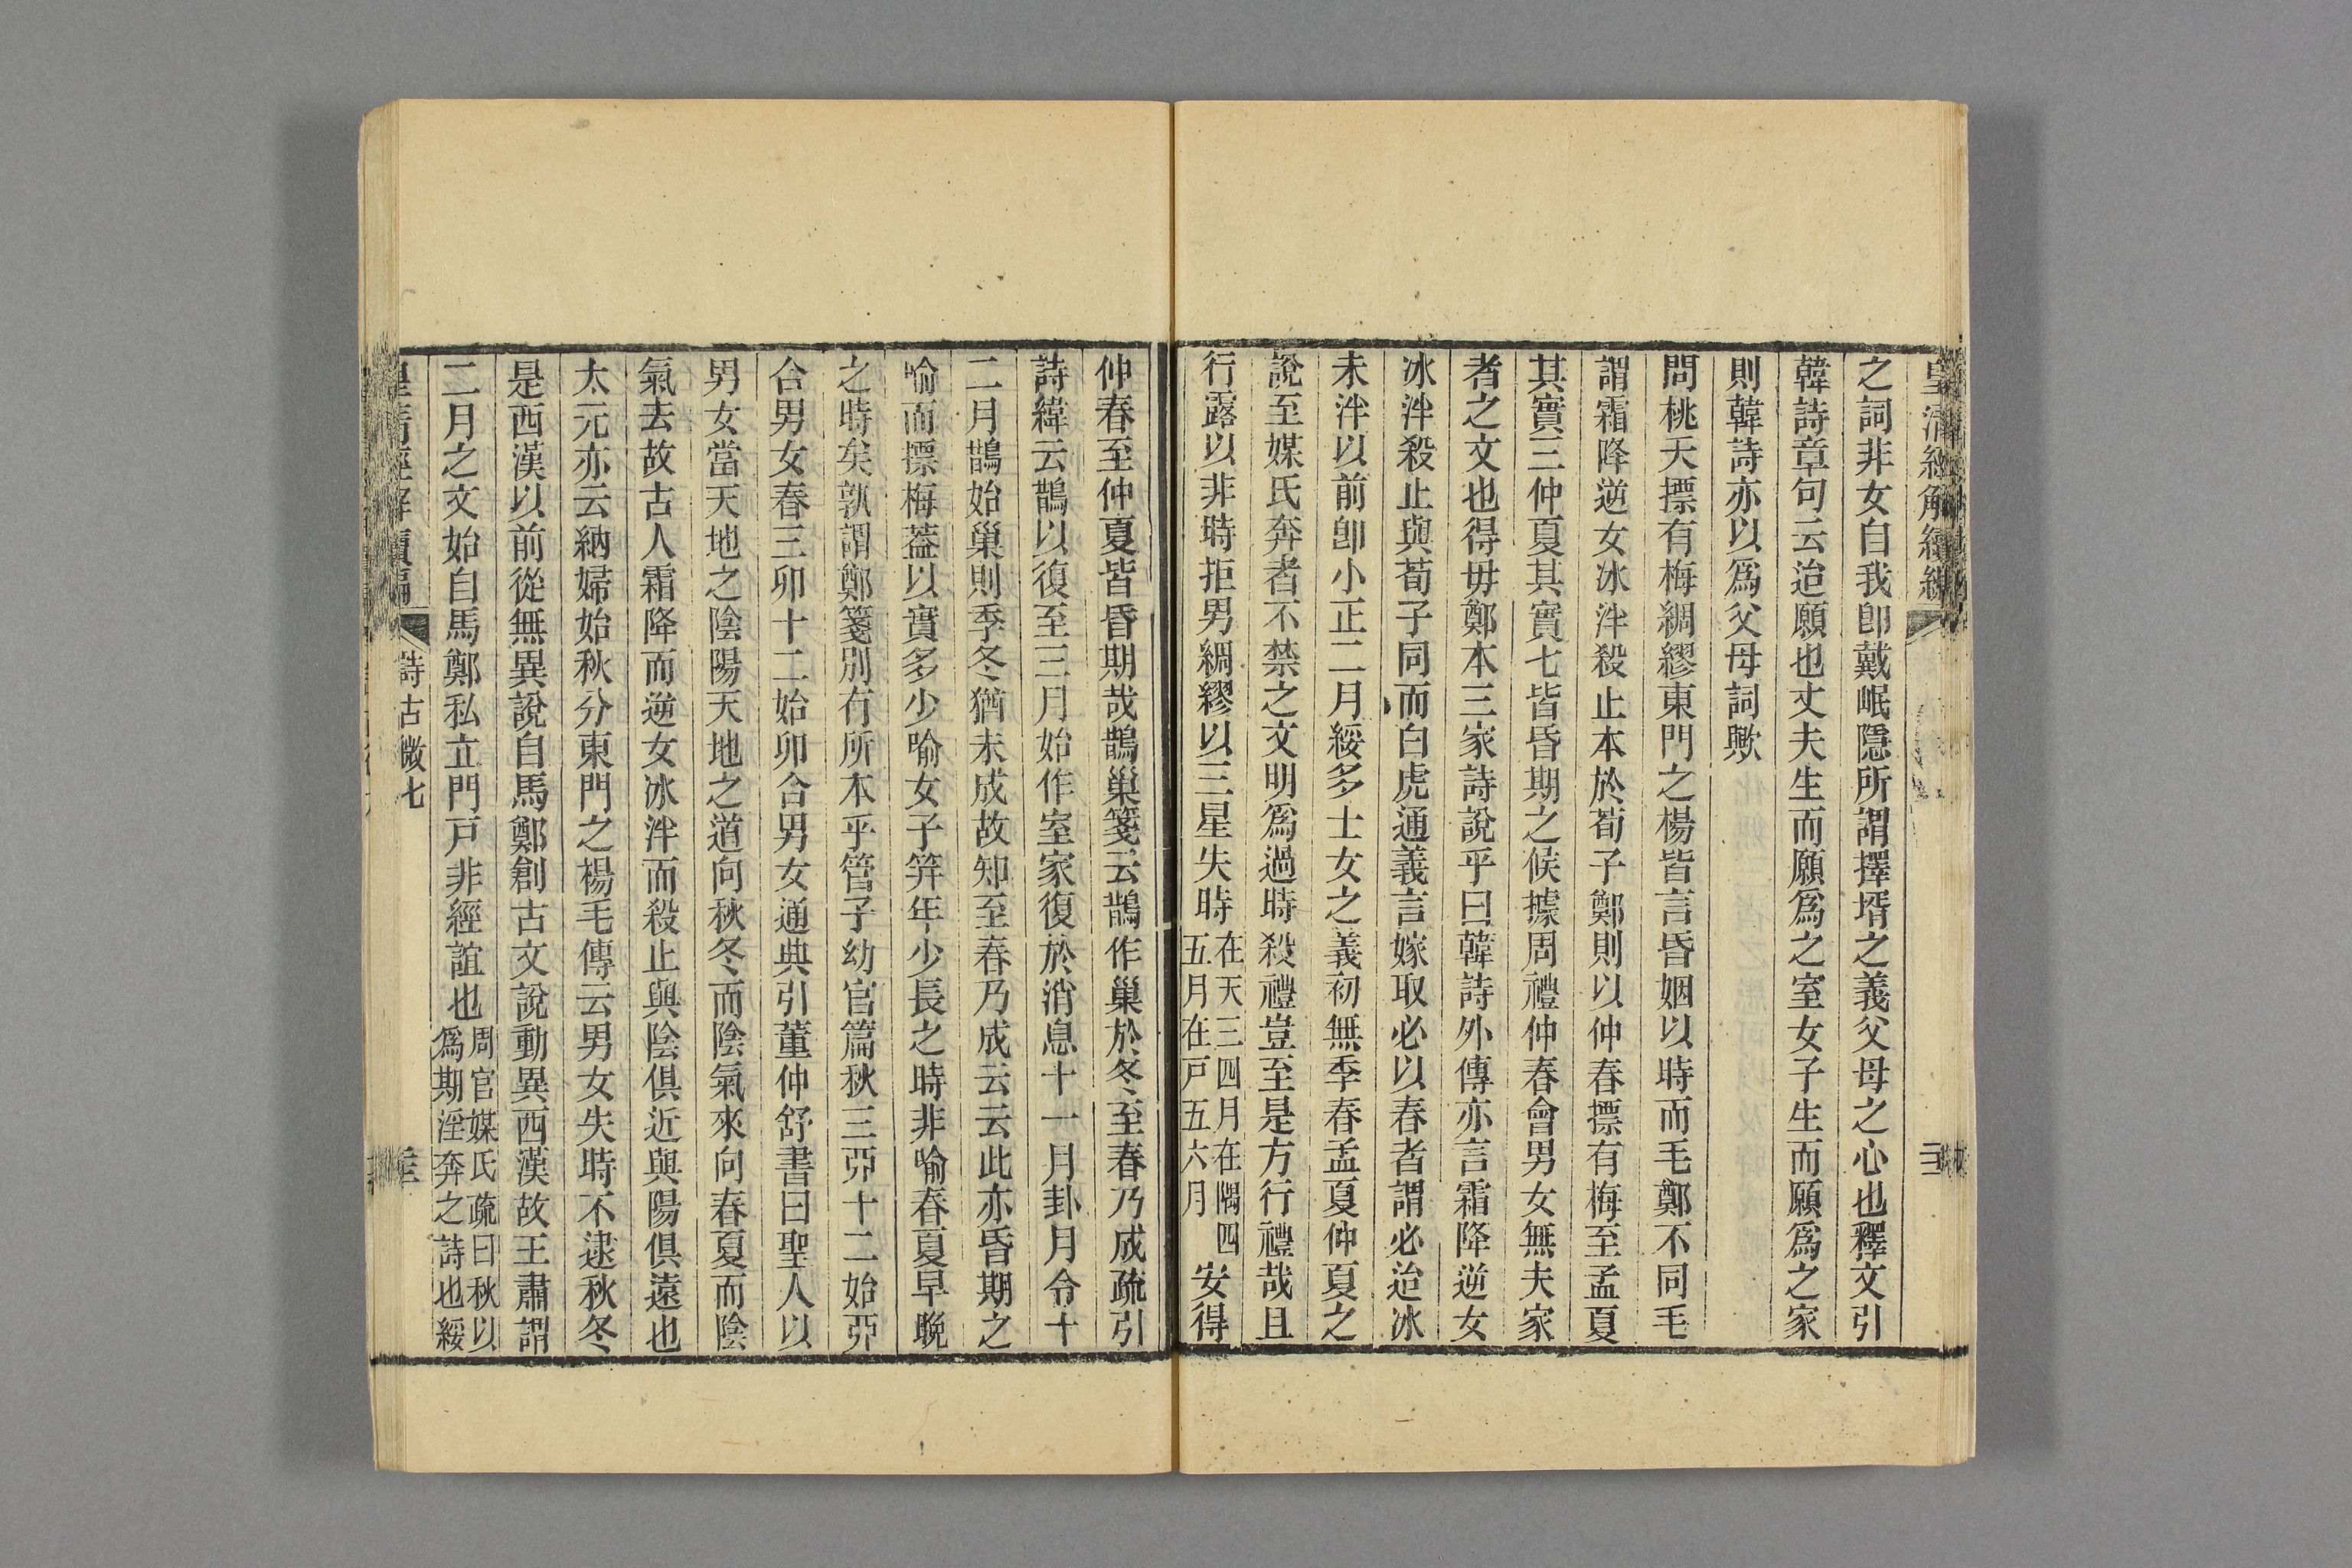 皇清經解續編
之詞非女自我卽戴岷隱所謂擇壻之義父母之心也釋文引
韓詩章句云迨願也丈夫生而願爲之室女子生而願爲之家
則韓詩亦以爲父母詞歟
問桃夭摽有梅綢繆東門之楊皆言昏姻以時而毛鄭不同毛
謂霜降逆女冰泮殺止本於荀子鄭則以仲春摽有梅至孟夏
其實三仲夏其實七皆昏期之候據周禮仲春會男女無夫家
者之文也得毋鄭本三家詩說乎曰韓詩外傳亦言霜降逆女
冰泮殺止與荀子同而白虎通義言嫁取必以春者謂必迨冰
未泮以前卽小正二月綏多士女之義初無季春孟夏仲夏之
說至媒氏奔者不禁之文明爲過時殺禮豈至是方行禮哉且
行露以非時拒男綢繆以三星失時在天三四月在隅四五月在戸五六月安得
仲春至仲夏皆昏期哉鵲巢箋云鵲作巢於冬至春乃成疏引
詩緯云鵲以復至三月始作室家復於消息十一月卦月令十
二月鵲始巢則季冬猶未成故知至春乃成云云此亦昏期之
喻而摽梅蓋以實多少喻女子笄年少長之時非喻春夏早晚
之時矣孰謂鄭箋別有所本乎管子幼官篇秋三卯十二始卯
合男女春三卯十二始卯合男女通典引董仲舒書曰聖人以
男女當天地之陰陽天地之道向秋冬而陰氣來向春夏而陰
氣去故古人霜降而逆女冰泮而殺止與陰俱近與陽俱遠也
太元亦云納婦始秋分東門之楊毛傳云男女失時不逮秋冬
是西漢以前從無異說自馬鄭創古文說動異西漢故王肅謂
二月之文始自馬鄭私立門戸非經誼也周官媒氏疏曰秋以爲期淫奔之詩也綏
皇清經解續編 詩古微七